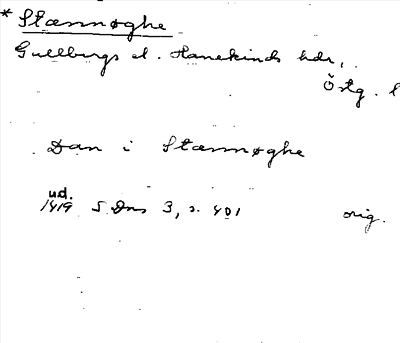 * Stæmnøghe
Gullbergs el. Hanekinds hdr,
Östg. l
Dan i Stæmnøghe
u.d.
1419 SDns 3, s. 401 orig.